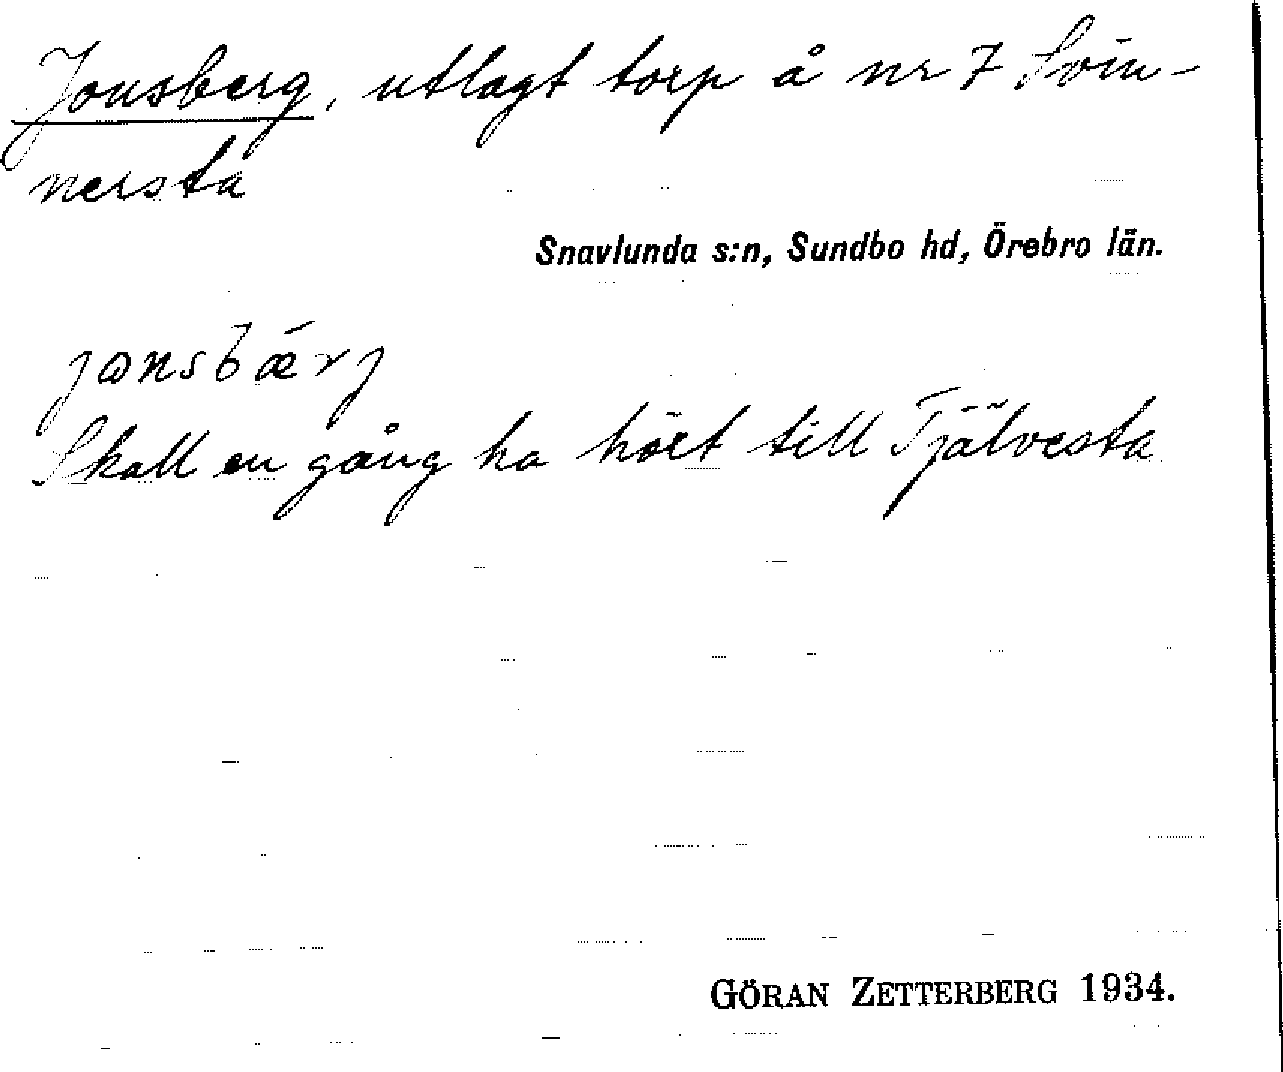 Jonsberg, utlagt torp å nr 7 Svin-
nersta
Snavlunda s:n, Sundbo hd, Örebro län.
jɷnsbæ̀rj
Skall en gång ha hört till Tjälvesta
GÖRAN ZETTERBERG 1934.